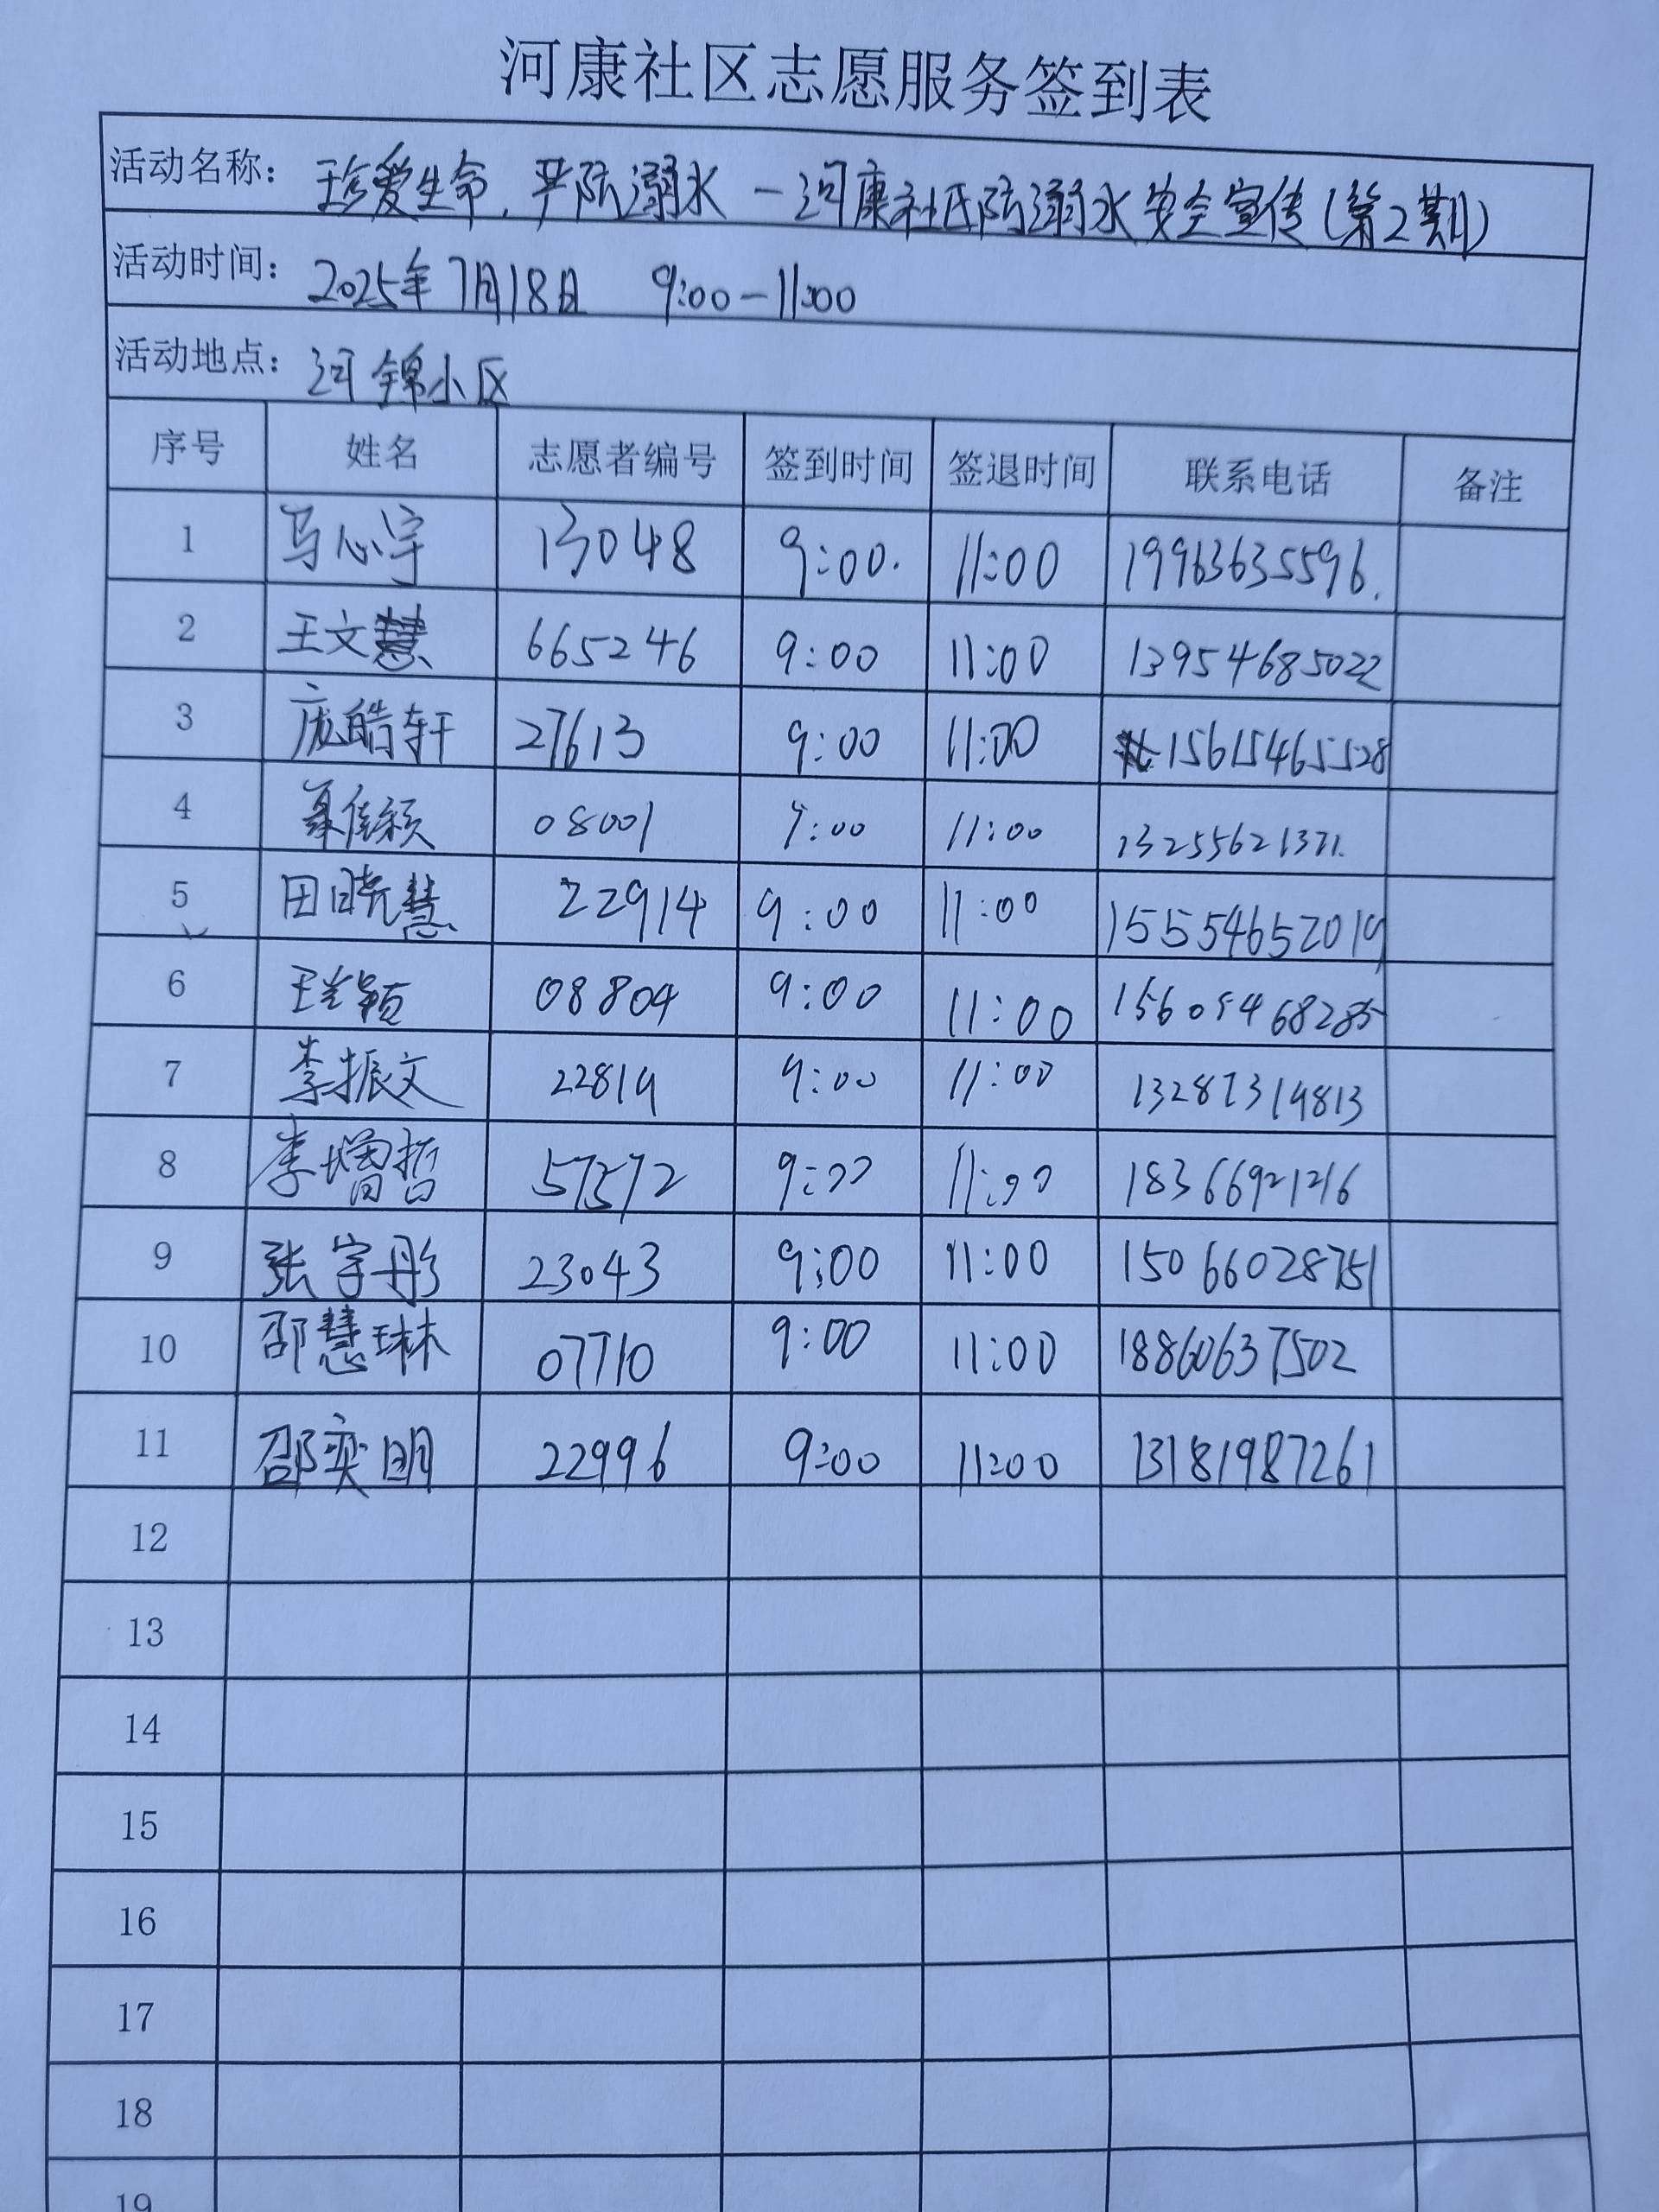 河康社区志愿服务签到表
活动名称： 珍爱生命，严防溺水－河康社区防溺水安全宣传（第2期）
活动时间： 2025年7月18日 9:00－11:00
活动地点： 河锦小区
序号 姓名 志愿者编号 签到时间 签退时间 联系电话 备注
1 马心宇 13048 9:00. 11:00 19963635596.
2 王文慧 665246 9:00 11:00 13954685022
3 庞皓轩 27613 9:00 11:00 15615465528
4 佳颖 08001 9:00 11:00
5 田晓慧 22914 9:00 11:00 15554652019
6 08804 9:00 11:00
7 李振文 22819 9:00 11:00 13287319813
8 李增哲 57572 9:00 11:00 18366921216
9 张宇彤 23043 9:00 11:00 15066028751
10 邵慧琳 07710 9:00 11:00 18860637502
11 邵奕明 22996 9:00 11:00 13181987261
12
13
14
15
16
17
18
19